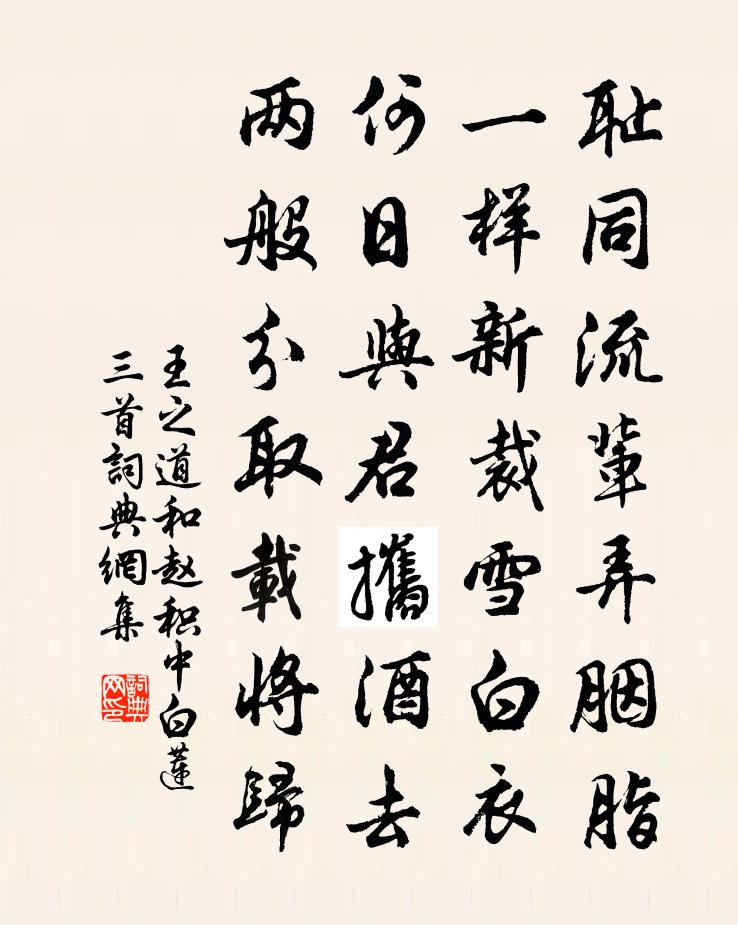 耻同流輩弄胭脂
一样新裁雪白衣
何日與君攜酒去
两般分取載將歸
王之道和赵积中白蓮
三首詞典網集
詞典网印